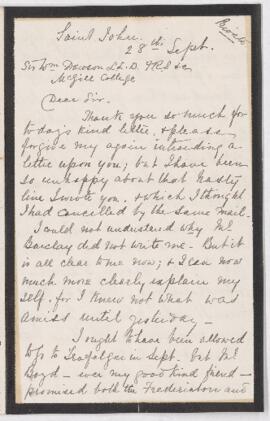 Saint John.
28th Sept.
Sir Wm Dawson LL.D. FRS &c
McGill College
Dear Sir.
Thank you so much for
to days kind letter, & please
forgive my again intruding a
letter upon you; but I have been
so unhappy about that hasty
line I wrote you. & which I thought
I had cancelled by the same mail.
I could not understand why Mr
Barclay did not write me. But it
is all clear to me now; & I can now
much more clearly explain my
self. for I knew not what was
amiss until yesterday —
I ought to have been allowed
to go to Trafalgar in Sept. but Mr
Boyd — ever my good kind friend —
promised both the Fredericton and